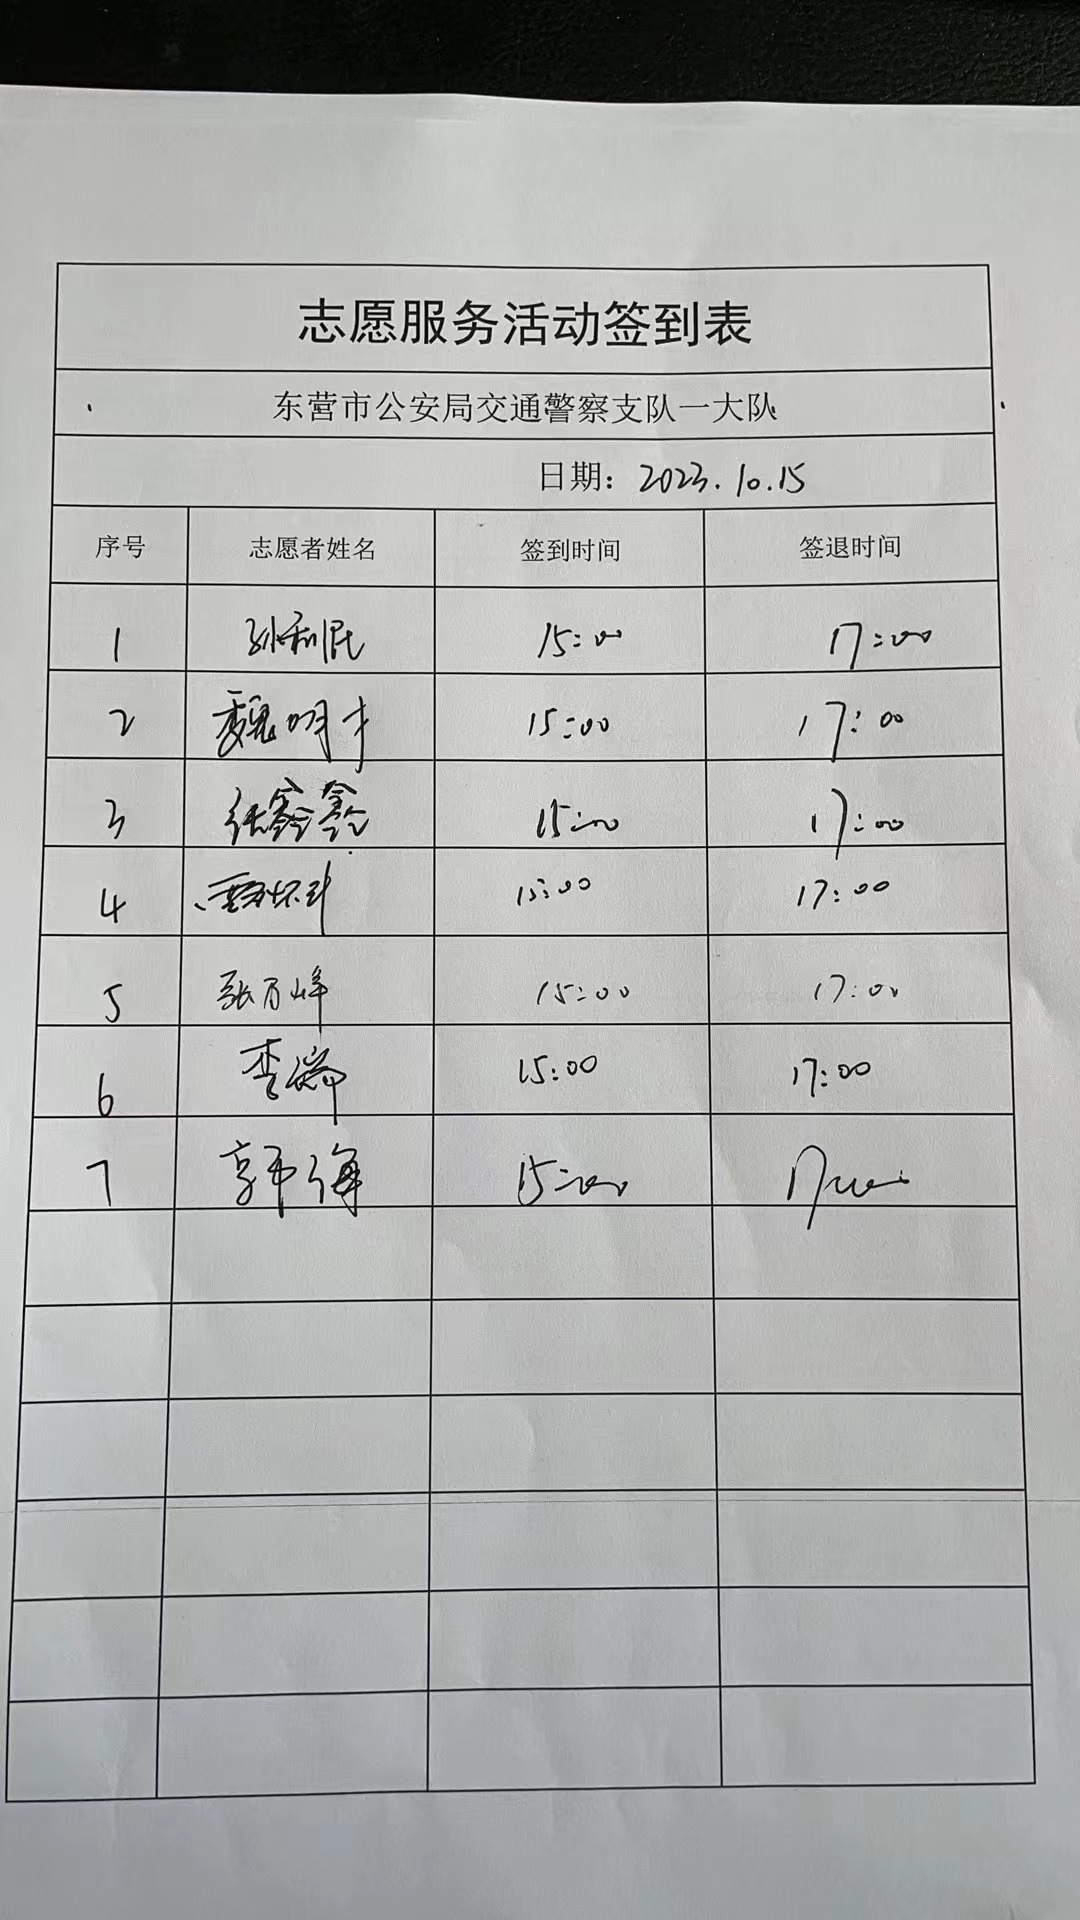 志愿服务活动签到表
东营市公安局交通警察支队一大队
日期：2023.10.15
序号 志愿者姓名 签到时间 签退时间
1 孙利民 15:00 17:00
2 魏明才 15:00 17:00
3 张鑫鑫 15:00 17:00
4 15:00 17:00
5 张万峰 15:00 17:00
6 李瑞 15:00 17:00
7 郭海 15:00 17:00